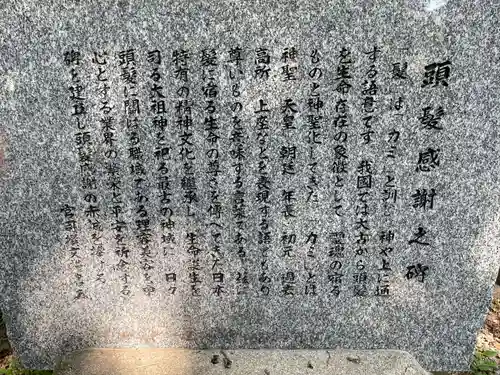 頭髪感謝之碑
「髪」は「カミ」と訓じ 神や上に通
ずる語意です 我国では太古から頭髪
を生命存在の象徴として 霊魂の宿る
ものと神聖化してきた 「カミ」とは
神聖 天皇 朝廷 年長 初元 過去
高所 上座などを表現する語であり
尊いものを意味する言葉である 頭
髪に宿る生命の尊さを傳へてきた日本
特有の精神文化を継承し 生命蘇生を
司る大祖神を祀る最古の神域に 日々
頭髪に関はる職域である理容美容を中
心とする業界の繁栄と平安を祈念する
碑を建立し頭髪感謝の赤誠を捧ぐ
宮司